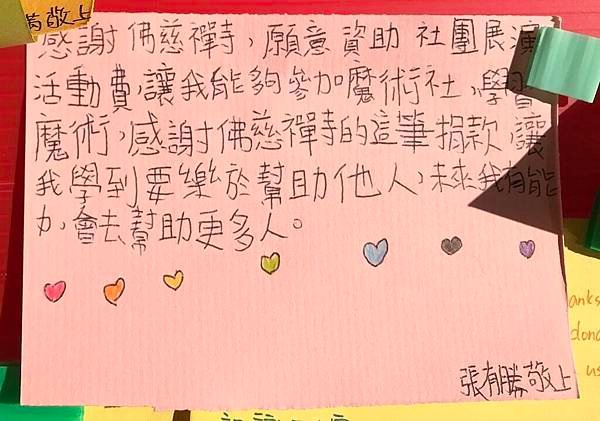 敬上
感謝佛慈禪寺，願意資助社團展演
活動費，讓我能夠參加魔術社，學習
魔術，感謝佛慈禪寺的這筆捐款，讓
我學到要樂於幫助他人，未來我有能
力，會去幫助更多人。
張有勝敬上
anks
dona
us